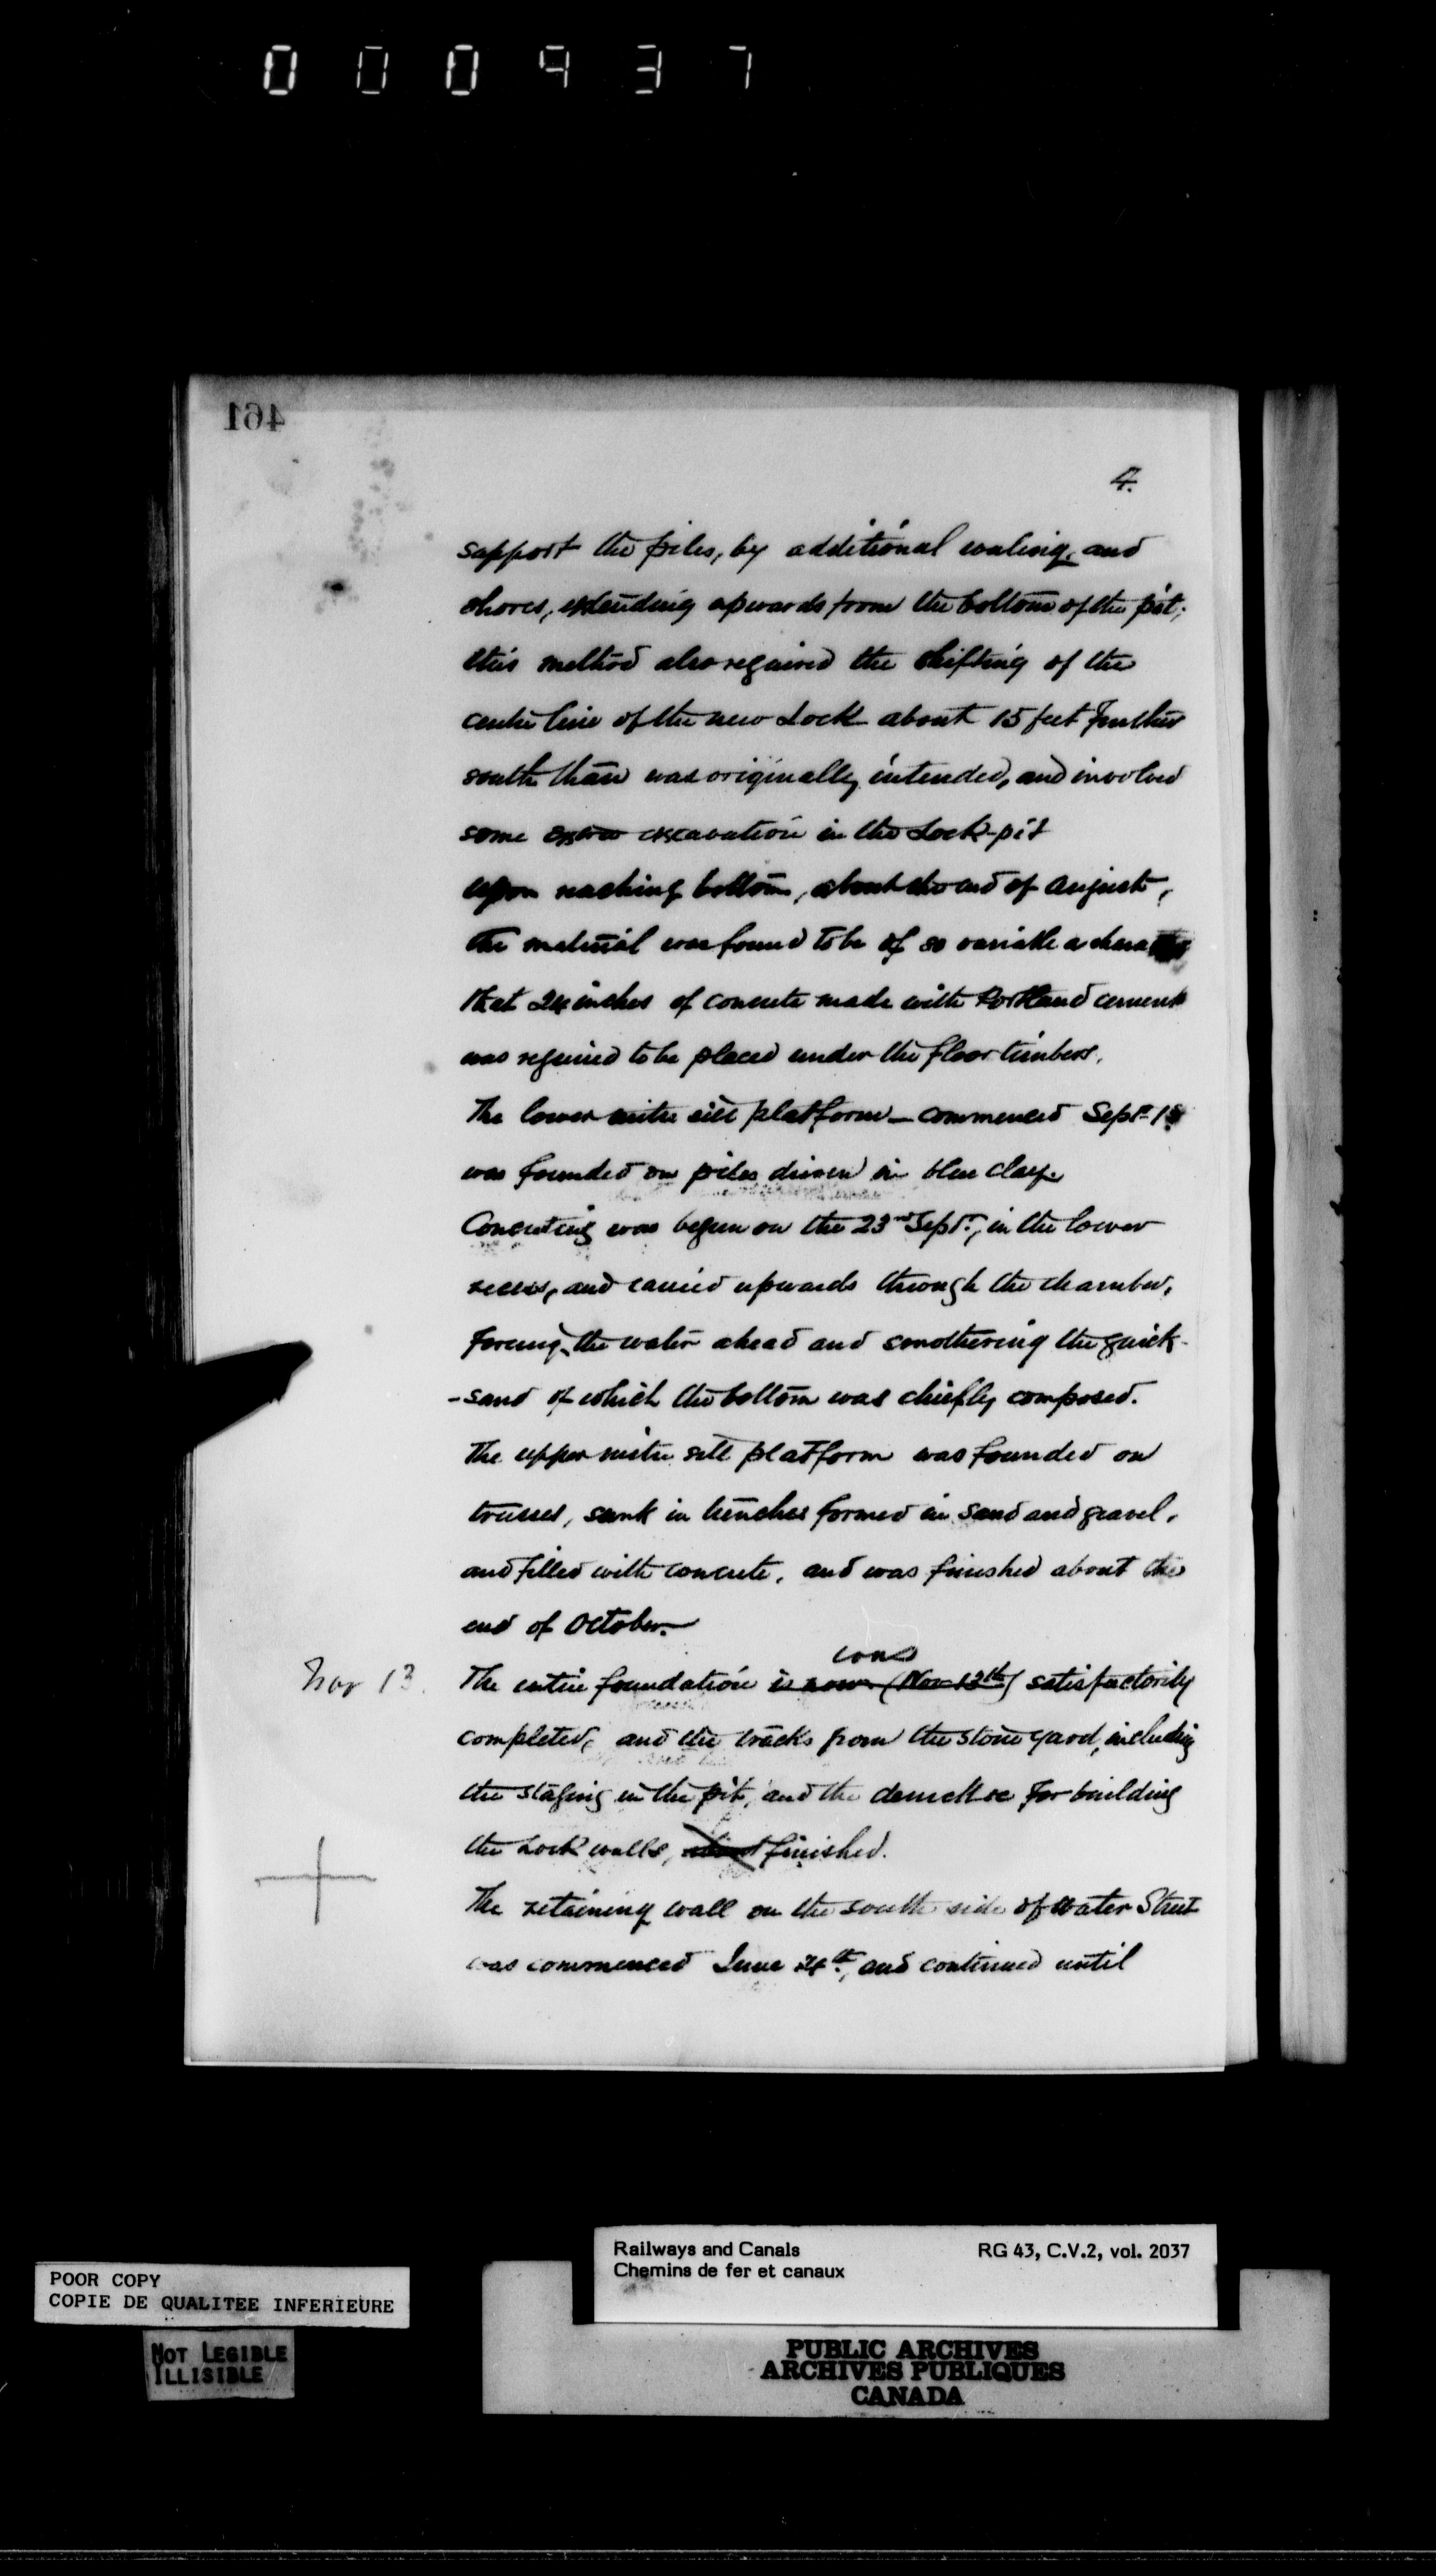 000937
461
4.
support the piles, by additional waling, and
shores, extending upwards from the bottom of the pit;
this method also required the shifting of the
centre line of the new Lock about 15 feet further
south than was originally intended, and involved
some excavation in the Lock-pit
upon reaching bottom, about the end of August,
the material was found to be of so variable a character
that 24 inches of concrete made with Portland cement
was required to be placed under the floor timbers.
The lower mitre sill platform - commenced Sept. 18
was founded on piles driven in blue clay.
Concreting was begun on the 23rd Sept., in the lower
recess, and carried upwards through the chamber,
forcing the water ahead and smothering the quick-
-sand of which the bottom was chiefly composed.
The upper mitre sill platform was founded on
trusses, sunk in trenches formed in sand and gravel,
and filled with concrete, and was finished about the
end of October.
was
Nov 13. The entire foundation is now (Nov 13th) satisfactorily
completed, and the tracks from the stone yard, including
the staging in the pit, and the for building
the Lock walls, finished.
The retaining wall on the south side of Water Street
was commenced June 24th, and continued until
Railways and Canals RG 43, C.V.2, vol. 2037
Chemins de fer et canaux
POOR COPY
COPIE DE QUALITEE INFERIEURE
NOT LEGIBLE
ILLISIBLE
PUBLIC ARCHIVES
ARCHIVES PUBLIQUES
CANADA